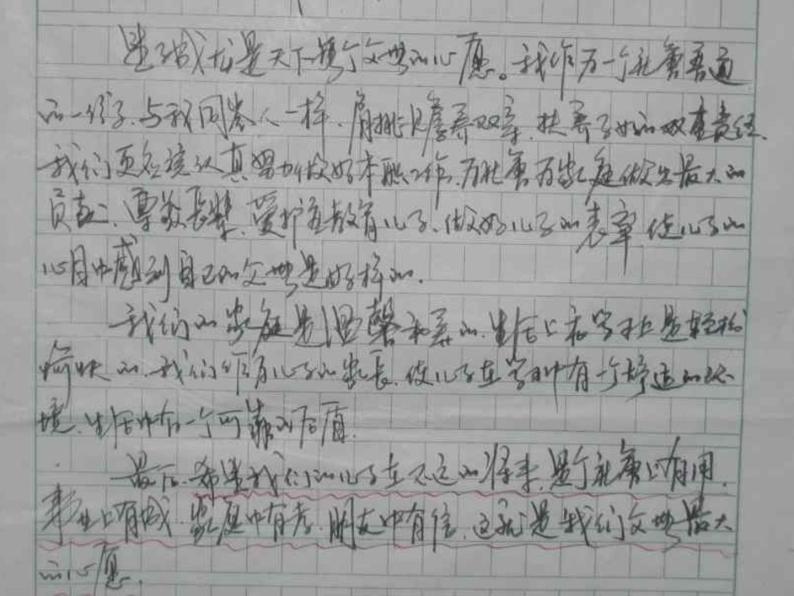 望子成龙是天下每个父母的心愿。我作为一个社会普通
的一份子,与我同龄人一样,肩挑着赡养双亲,扶养子女的双重责任,
我们更应该认真努力做好本职工作,为社会为家庭做出最大的
贡献,尊敬长辈,爱护教育儿子,做好儿子的表率,使儿子的
心目中感到自己的父母是好样的.
我们的家庭是温馨和美的,生活上和学习上是轻松
愉快的,我们作为儿子的家长,使儿子在学习中有一个舒适的环
境,生活中有一个可靠的后盾.
最后,希望我们的儿子在不远的将来,是个社会上有用,
事业上有成,家庭中有孝,朋友中有信,这就是我们父母最大
的心愿.